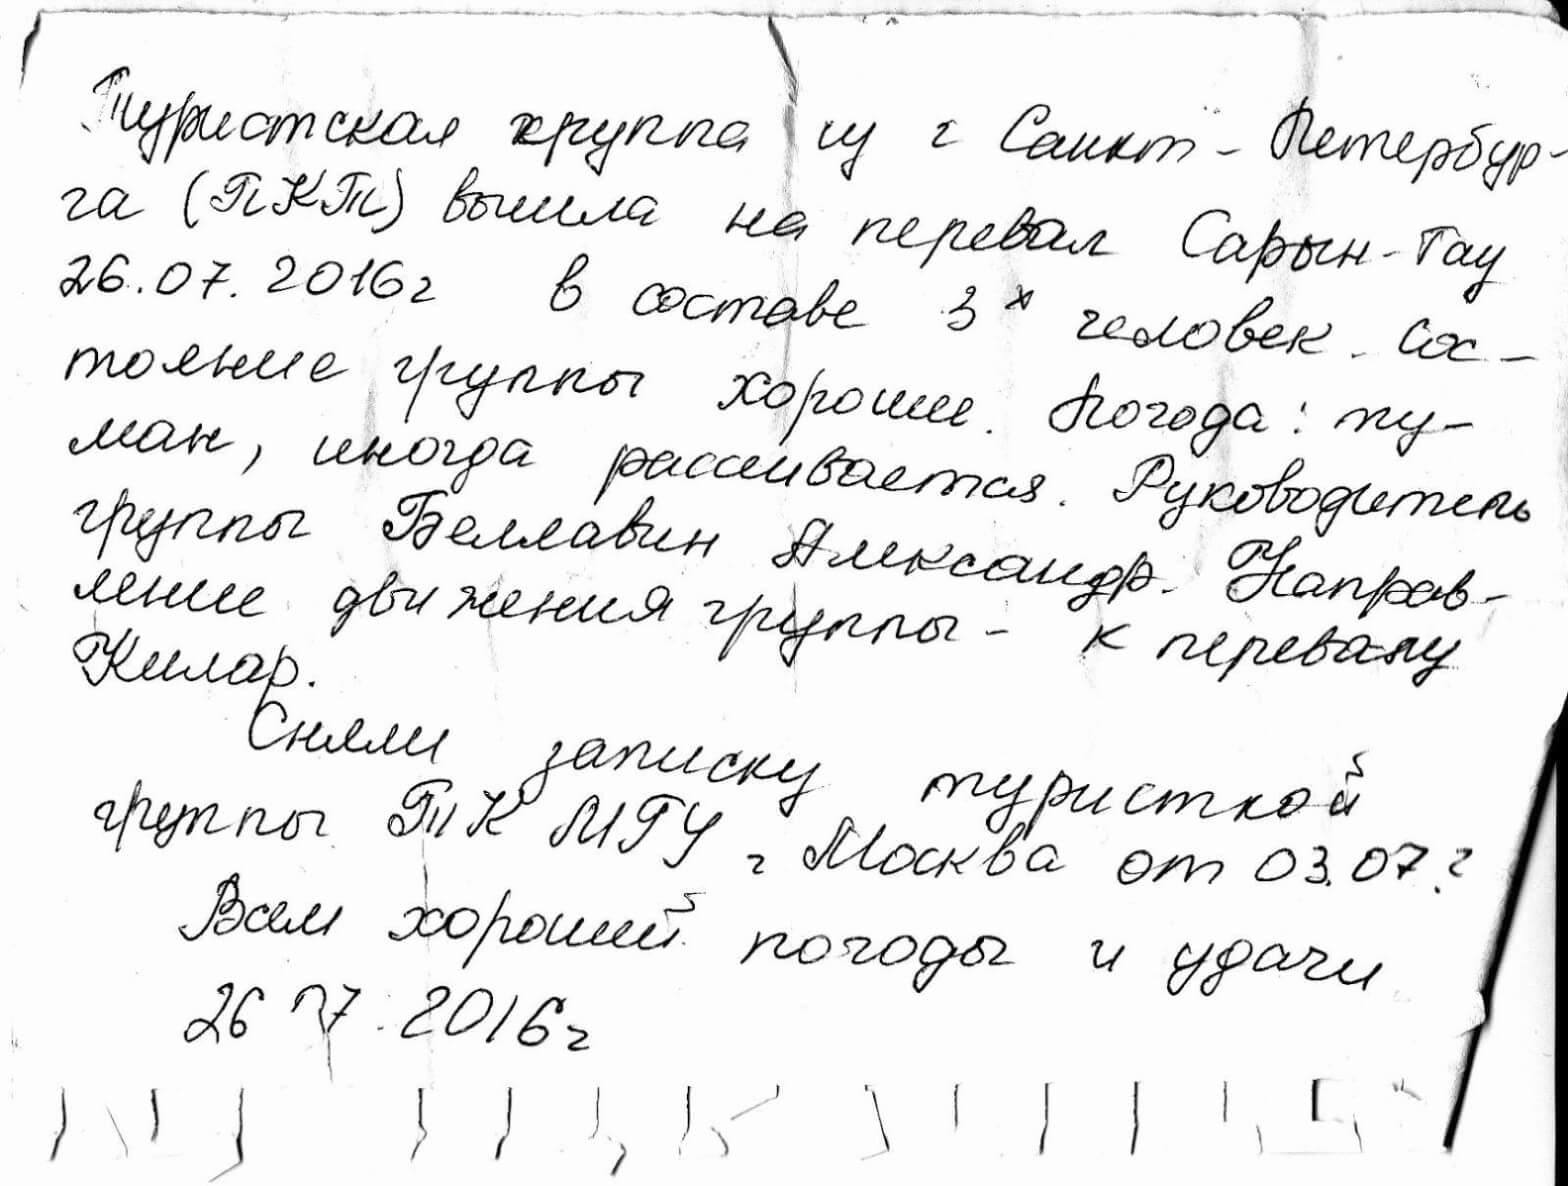 Туристская группа из г Санкт-Петербур-
га (ПКТ) вышла на перевал Сарын-Тау
26.07.2016г в составе 3х человек. Сос-
тояние группы хорошее. Погода: ту-
ман, иногда рассеивается. Руководитель
группы Беллавин Александр. Направ-
ление движения группы - к перевалу
Килар.
Сняли записку туристкой
группы ТК МГУ г Москва от 03.07.г
Всем хорошей погоды и удачи
26 07.2016г